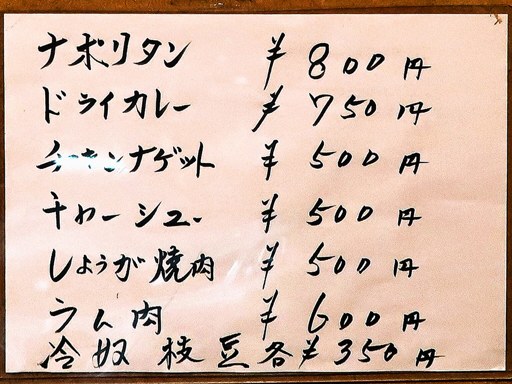 ナポリタン ¥800円
ドライカレー ¥750円
チキンナゲット ¥500円
チャーシュー ¥500円
しょうが焼肉 ¥500円
ラム肉 ¥600円
冷奴 枝豆 各¥350円